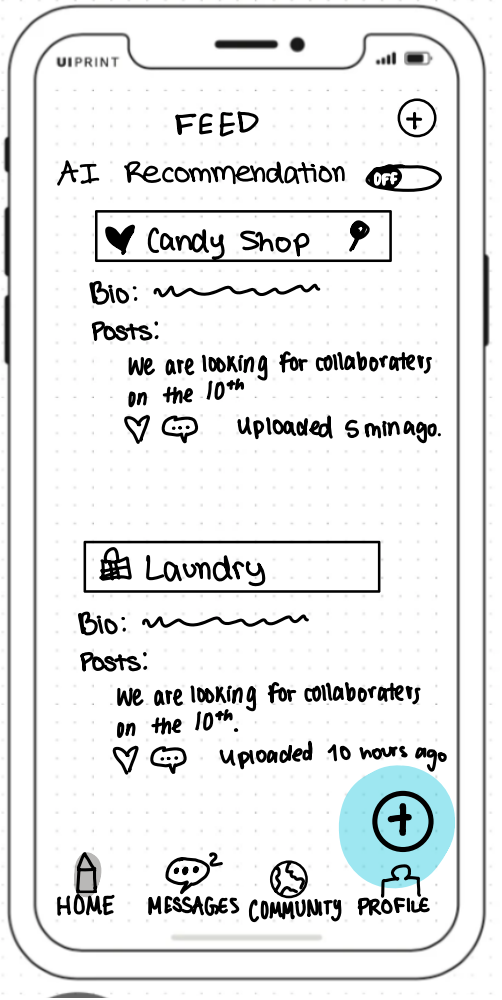 UIPRINT
FEED
AI Recommendation OFF
Candy Shop
Bio:
Posts:
We are looking for collaboraters
on the 10th
Uploaded 5 min ago.
Laundry
Bio:
Posts:
We are looking for collaboraters
on the 10th.
Uploaded 10 hours ago
2
HOME MESSAGES COMMUNITY PROFILE